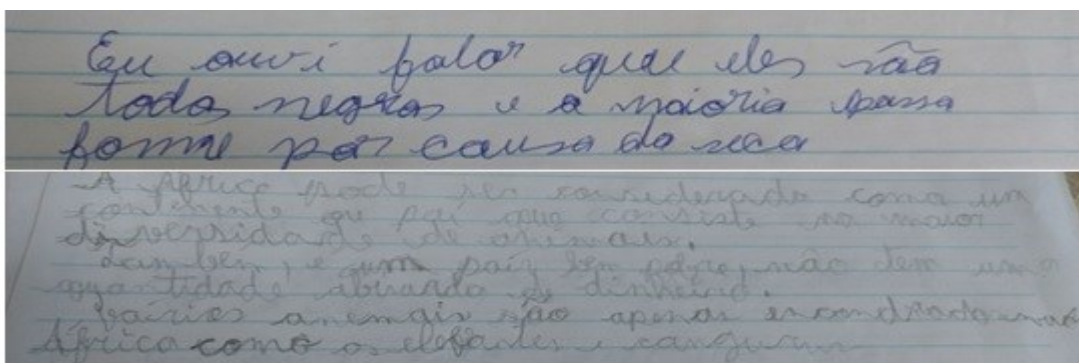 Eu ouvi falar que eles são
todos negros e a maioria passa
fome por causa da seca
A África pode ser considerada como um
continente ou pai que consiste na maior
diversidade de animais.
também, é um país bem pobre, não tem uma
quantidade abuanda de dinheiro.
Vairios anemais são apenas encondrado na
África como os elefantes e cangurus